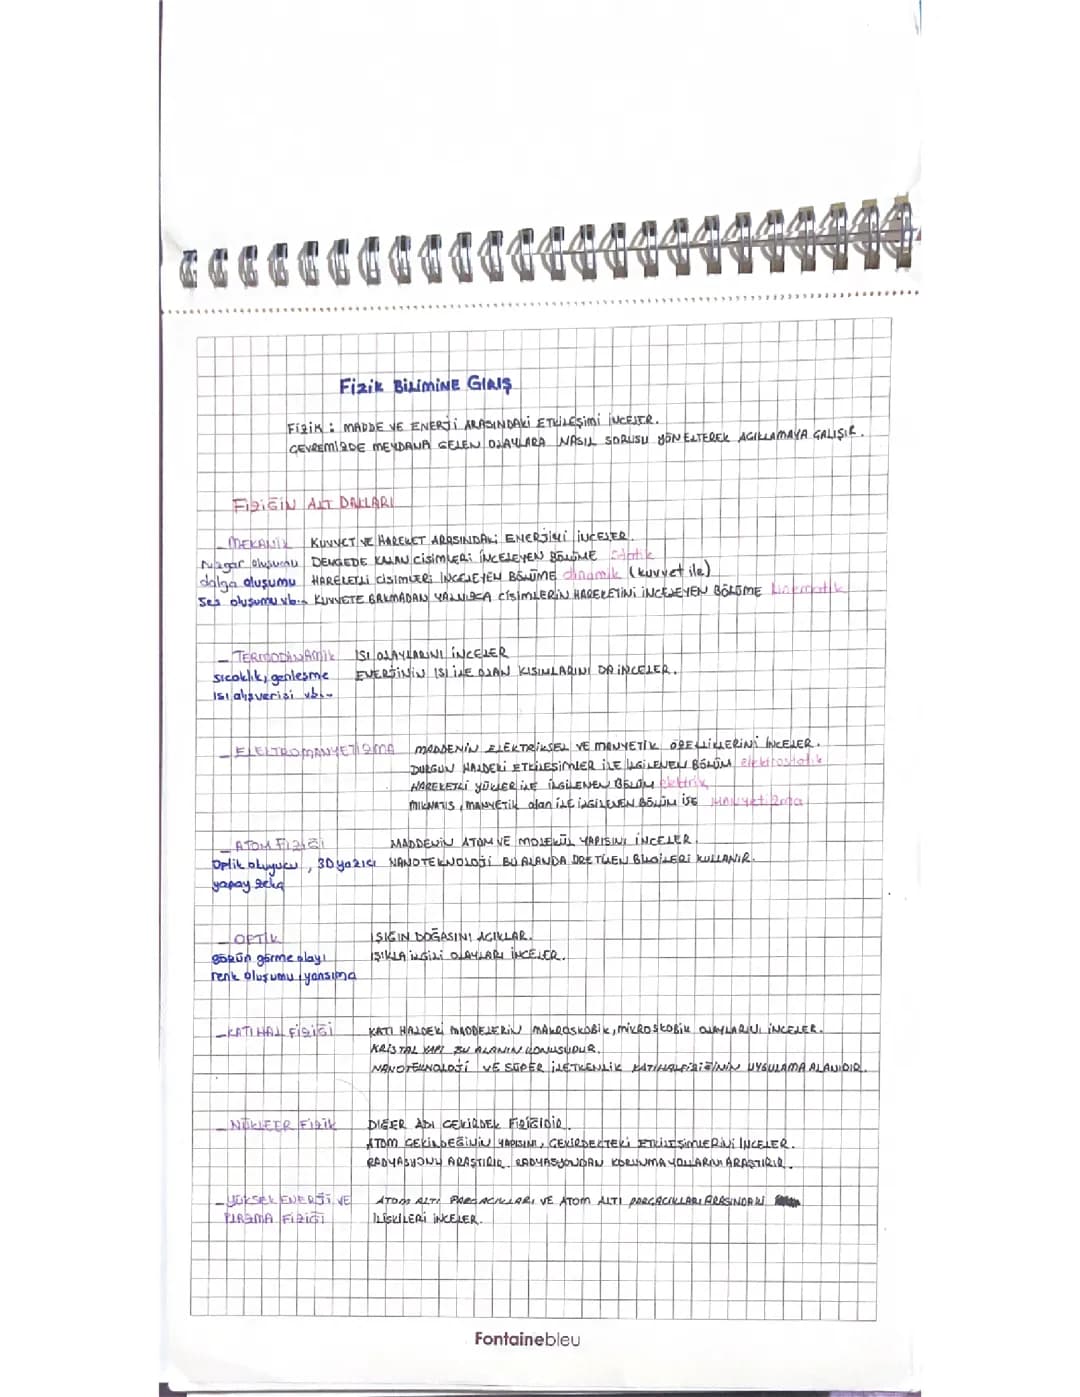 Fizik BİLİMİNE GİRİŞ
Fizik : MADDE VE ENERJİ ARASINDAKİ ETKİLEŞİMİ İNCELER.
ÇEVREMİZDE MEYDANA GELEN OLAYLARA NASIL SORUSU YÖNELTEREK AÇIKLAMAYA ÇALIŞIR.
FİZİĞİN ALT DALLARI
_ MEKANİK KUVVET VE HAREKET ARASINDAKİ ENERJİYİ İNCELER.
rüzgar oluşumu DENGEDE KALAN CİSİMLERİ İNCELEYEN BÖLÜME Statik
dalga oluşumu HAREKETLİ CİSİMLERİ İNCELEYEN BÖLÜME dinamik (kuvvet ile)
Ses oluşumu vb... KUVVETE BAKMADAN YALNIZCA CİSİMLERİN HAREKETİNİ İNCELEYEN BÖLÜME kinematik
_ TERMODİNAMİK ISI OLAYLARINI İNCELER
sıcaklık, genleşme ENERJİNİN ISI İLE OLAN KISIMLARINI DA İNCELER.
ısı alışverişi vb...
_ ELEKTROMANYETİZMA MADDENİN ELEKTRİKSEL VE MANYETİK ÖZELLİKLERİNİ İNCELER.
DURGUN HALDEKİ ETKİLEŞİMLER İLE İLGİLENEN BÖLÜM elektrostatik
HAREKETLİ YÜKLER İLE İLGİLENEN BÖLÜM elektrik
MIKNATIS, MANYETİK alan İLE İLGİLENEN BÖLÜM İSE MANyetizma
_ ATOM FİZİĞİ MADDENİN ATOM VE MOLEKÜL YAPISINI İNCELER.
Optik okuyucu, 3D yazıcı NANOTEKNOLOJİ BU ALANDA ÜRETİLEN BİLGİLERİ KULLANIR.
yapay zeka
_ OPTİK IŞIĞIN DOĞASINI AÇIKLAR.
gözün görme olayı IŞIKLA İLGİLİ OLAYLARI İNCELER.
renk oluşumu, yansıma
_ KATI HAL FİZİĞİ KATI HALDEKİ MADDELERİN MAKROSKOBİK, MİKROSKOBİK OLAYLARINI İNCELER.
KRİSTAL YAPI BU ALANIN KONUSUDUR.
NANOTEKNOLOJİ VE SÜPER İLETKENLİK KATIHALFİZİĞİNİN UYGULAMA ALANIDIR.
_ NÜKLEER FİZİK DİĞER ADI ÇEKİRDEK FİZİĞİDİR.
ATOM ÇEKİRDEĞİNİN YAPISINI, ÇEKİRDEKTEKİ ETKİLEŞİMLERİNİ İNCELER.
RADYASYONU ARAŞTIRIR. RADYASYONDAN KORUNMA YOLLARINI ARAŞTIRIR.
_ YÜKSEK ENERJİ VE ATOM ALTI PARÇACIKLARI VE ATOM ALTI PARÇACIKLARI ARASINDAKİ
PLAZMA FİZİĞİ İLİŞKİLERİ İNCELER.
Fontainebleu